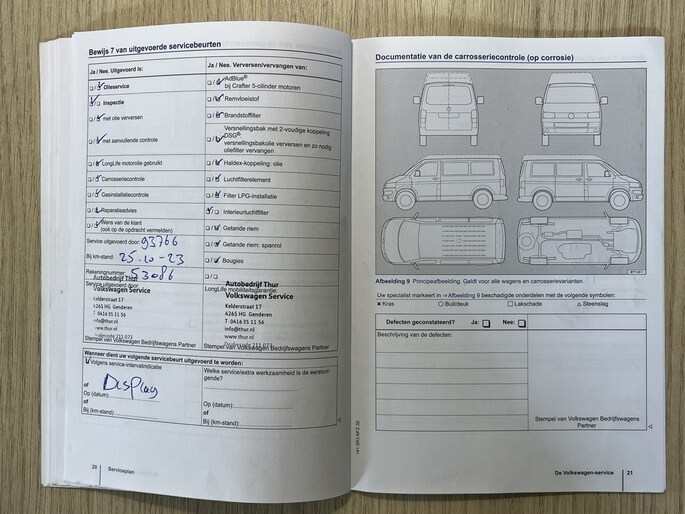 Bewijs 7 van uitgevoerde servicebeurten
Ja / Nee. Uitgevoerd is:
Olieservice
Inspectie
met olie verversen
met aanvullende controle
LongLife motorolie gebruikt
Carrosseriecontrole
Gasinstallatiecontrole
Reparatieadvies
Wens van de klant
(ook op de opdracht vermelden)
Service uitgevoerd door: 93766
Bij km-stand: 25-10-23
Rekeningnummer: 53086
Service uitgevoerd door:
Autobedrijf Thur
Volkswagen Service
Kelderstraat 17
4265 HG Genderen
T 0416 35 11 56
info@thur.nl
www.thur.nl
Stempel van Volkswagen Bedrijfswagens Partner
Ja / Nee. Verversen/vervangen van:
AdBlue®
bij Crafter 5-cilinder motoren
Remvloeistof
Brandstoffilter
Versnellingsbak met 2-voudige koppeling
DSG®:
versnellingsbakolie verversen en zo nodig
oliefilter vervangen
Haldex-koppeling: olie
Luchtfilterelement
Filter LPG-installatie
Interieurluchtfilter
Getande riem
Getande riem: spanrol
Bougies
LongLife mobiliteitsgarantie:
Autobedrijf Thur
Volkswagen Service
Kelderstraat 17
4265 HG Genderen
T 0416 35 11 56
info@thur.nl
www.thur.nl
Stempel van Volkswagen Bedrijfswagens Partner
Wanneer dient uw volgende servicebeurt uitgevoerd te worden:
Volgens service-intervalindicatie
Display
of
Op (datum):
of
Bij (km-stand):
Welke service/extra werkzaamheid is de eerstvol-
gende?
Op (datum):
Bij (km-stand):
20 Serviceplan
Documentatie van de carrosseriecontrole (op corrosie)
Afbeelding 9 Principeafbeelding. Geldt voor alle wagens en carrosserievarianten.
Uw specialist markeert in ⇒Afbeelding 9 beschadigde onderdelen met de volgende symbolen:
× Kras
○ Buil/deuk
□ Lakschade
△ Steenslag
Defecten geconstateerd? Ja: Nee:
Beschrijving van de defecten:
Stempel van Volkswagen Bedrijfswagens
Partner
De Volkswagen-service 21